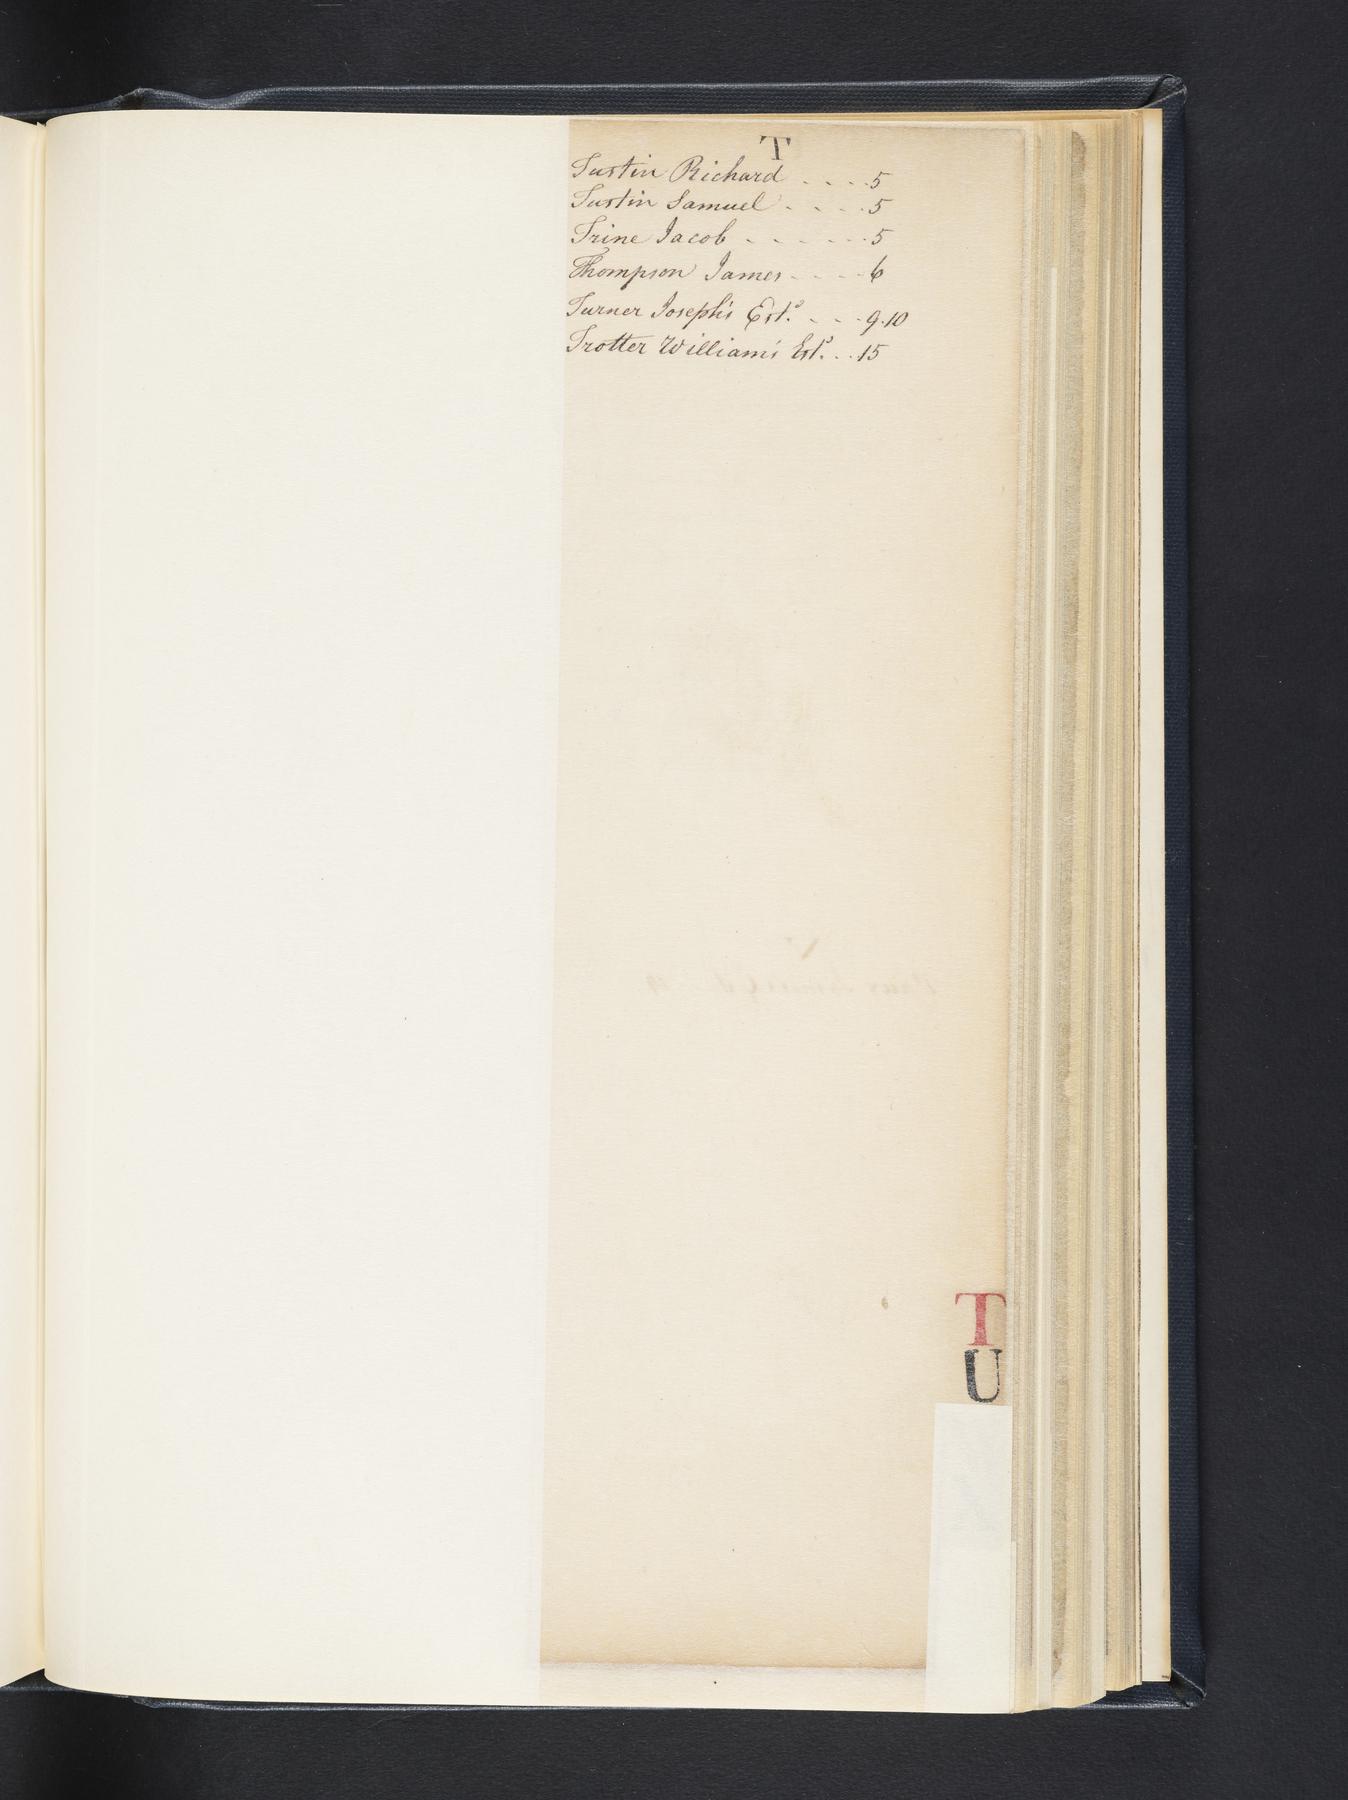 T
Tustin Richard . . . . 5
Tustin Samuel . . . . 5
Trine Jacob . . . . . . 5
Thompson James . . . . 6
Turner Joseph's Est.ᵉ . . . 9.10
Trotter William's Est.ᵉ . . 15
T
U